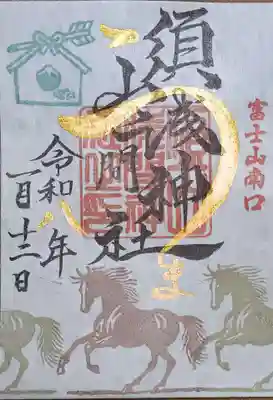 富士山南口
須山浅間神社
令和八年
一月十二日